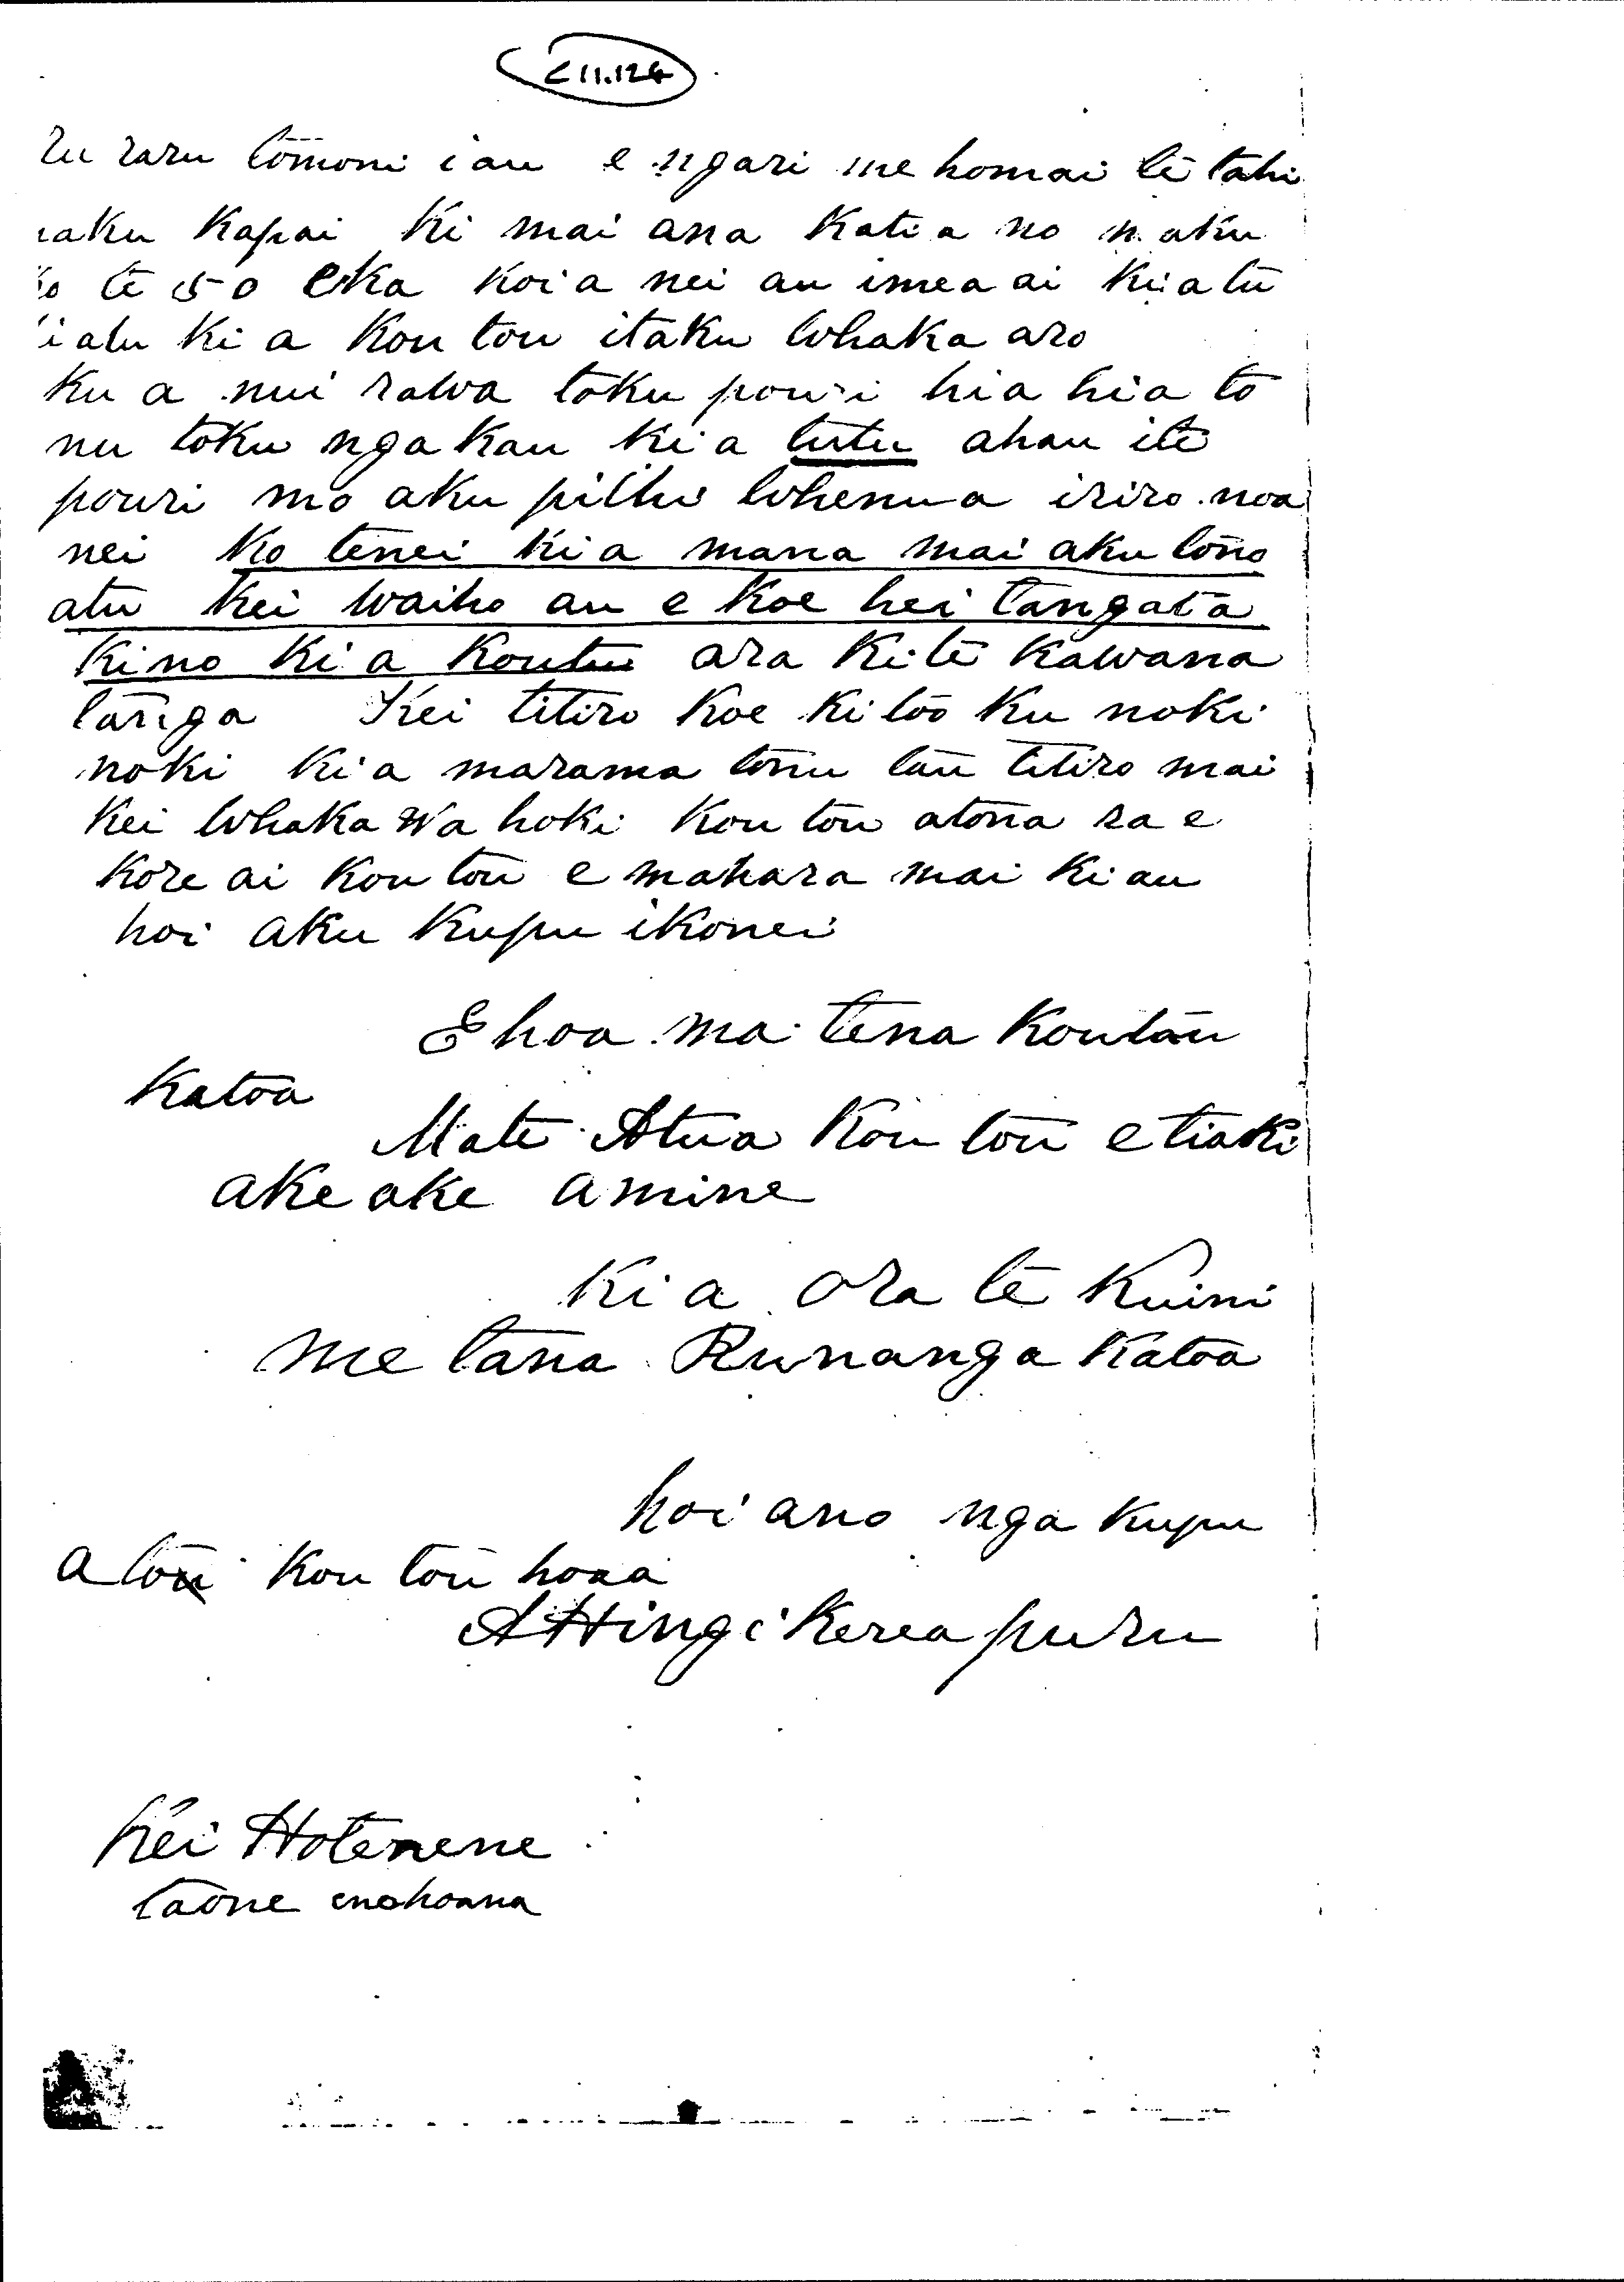 C11.124
ru raru tomoni i au e ngari me homai te tahi
naku kapai ki mai ana Katia no n aku
ko te 50 eka koi a nei au imea ai kia tu
i atu ki a Kou tou itaku whaka aro
Ku a nui rawa toku pouri hia hia to
nu toku nga kau kia tutu ahau ite
pouri mo aku pilhi whenua iriro noa
nei Ko tenei ki a mana mai aku tono
atu Kei waiho au e Koe hei tangata
Kino ki a Koutu ara Ki te Kawana
tanga Kei titiro Koe ki too Ku noki
noki ki a marama tonu tau titiro mai
Kei whaka wa hoki Kou tou atona ra e
Kore ai Kou tou e mahara mai Ki au
hoi aku Kupu ikonei
E hoa ma tena Koutou
Katoa
Mate Atua Kou tou e tiaki
ake ake amine
Ki a ora te Kuini
me tana Runanga Katoa
hoi ano nga kupu
a Kou tou hoaa
A Hingi kerea puru
Kei Hotenene
taone enohoana